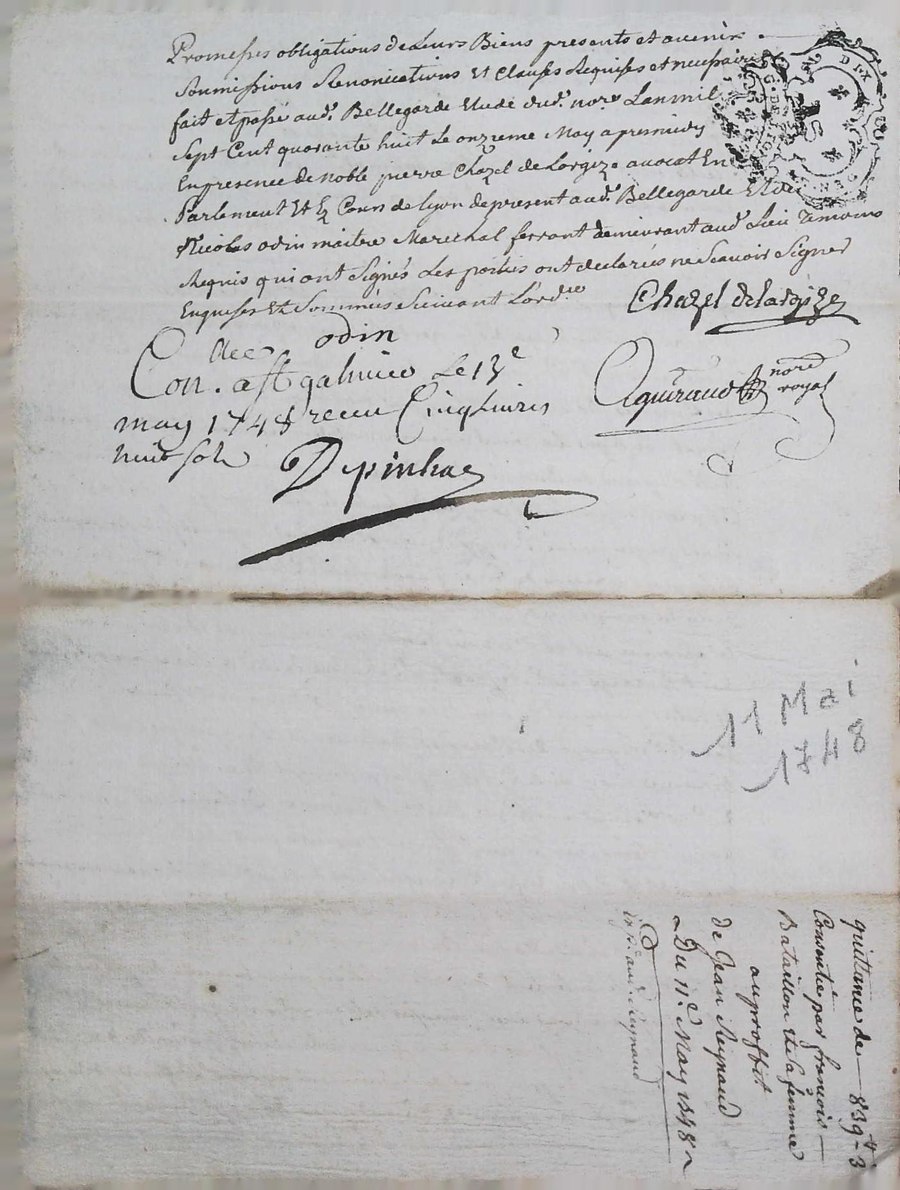 Promesses obligations de Leurs Biens presents et avenir
Soumissions Renonciations Et Clauses Requises et necessaires
fait et passé aud. Bellegarde Etude dud. nore Lan mil
Sept Cent quarante huit Le onzeme May apresmidy
En presence de noble pierre Chazel de avocat En
Parlement Et Ez Cours de Lyon de present aud. Bellegarde Et de
Nicolas odin maitre Marechal ferrant demeurant aud. Lieu Temoins
Requis qui ont Signés Les parties ont declarées ne Scavoir Signer
Enquises Et Sommées Suivant L'ord.ce
DIX
Chazel
odin
Con. a St galmier Le 13e
may 1748 receu Cinq Livres
huit sols
nore
royal
11 Mai
1748
quittance de 839# 3
Consentie par françois
Bataillon Et Sa femme
au proffit
de Jean Reynaud
Du 11e. May 1748
Reynaud